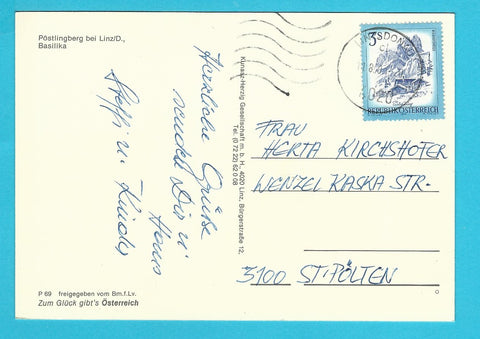 Pöstlingberg bei Linz/D.,
Basilika
Herzliche Grüße
sendet Dir u.
Hans
Steffi u. Kinder
P 69 freigegeben vom Bm.f.Lv.
Zum Glück gibt's Österreich
Kunast-Herzig Gesellschaft m. b. H., 4020 Linz, Bürgerstraße 12,
Tel. (0 72 22) 62 0 08
3 S
REPUBLIK ÖSTERREICH
FRAU
HERTA KIRCHSHOFER
WENZEL KASKA STR.
3100 ST. PÖLTEN